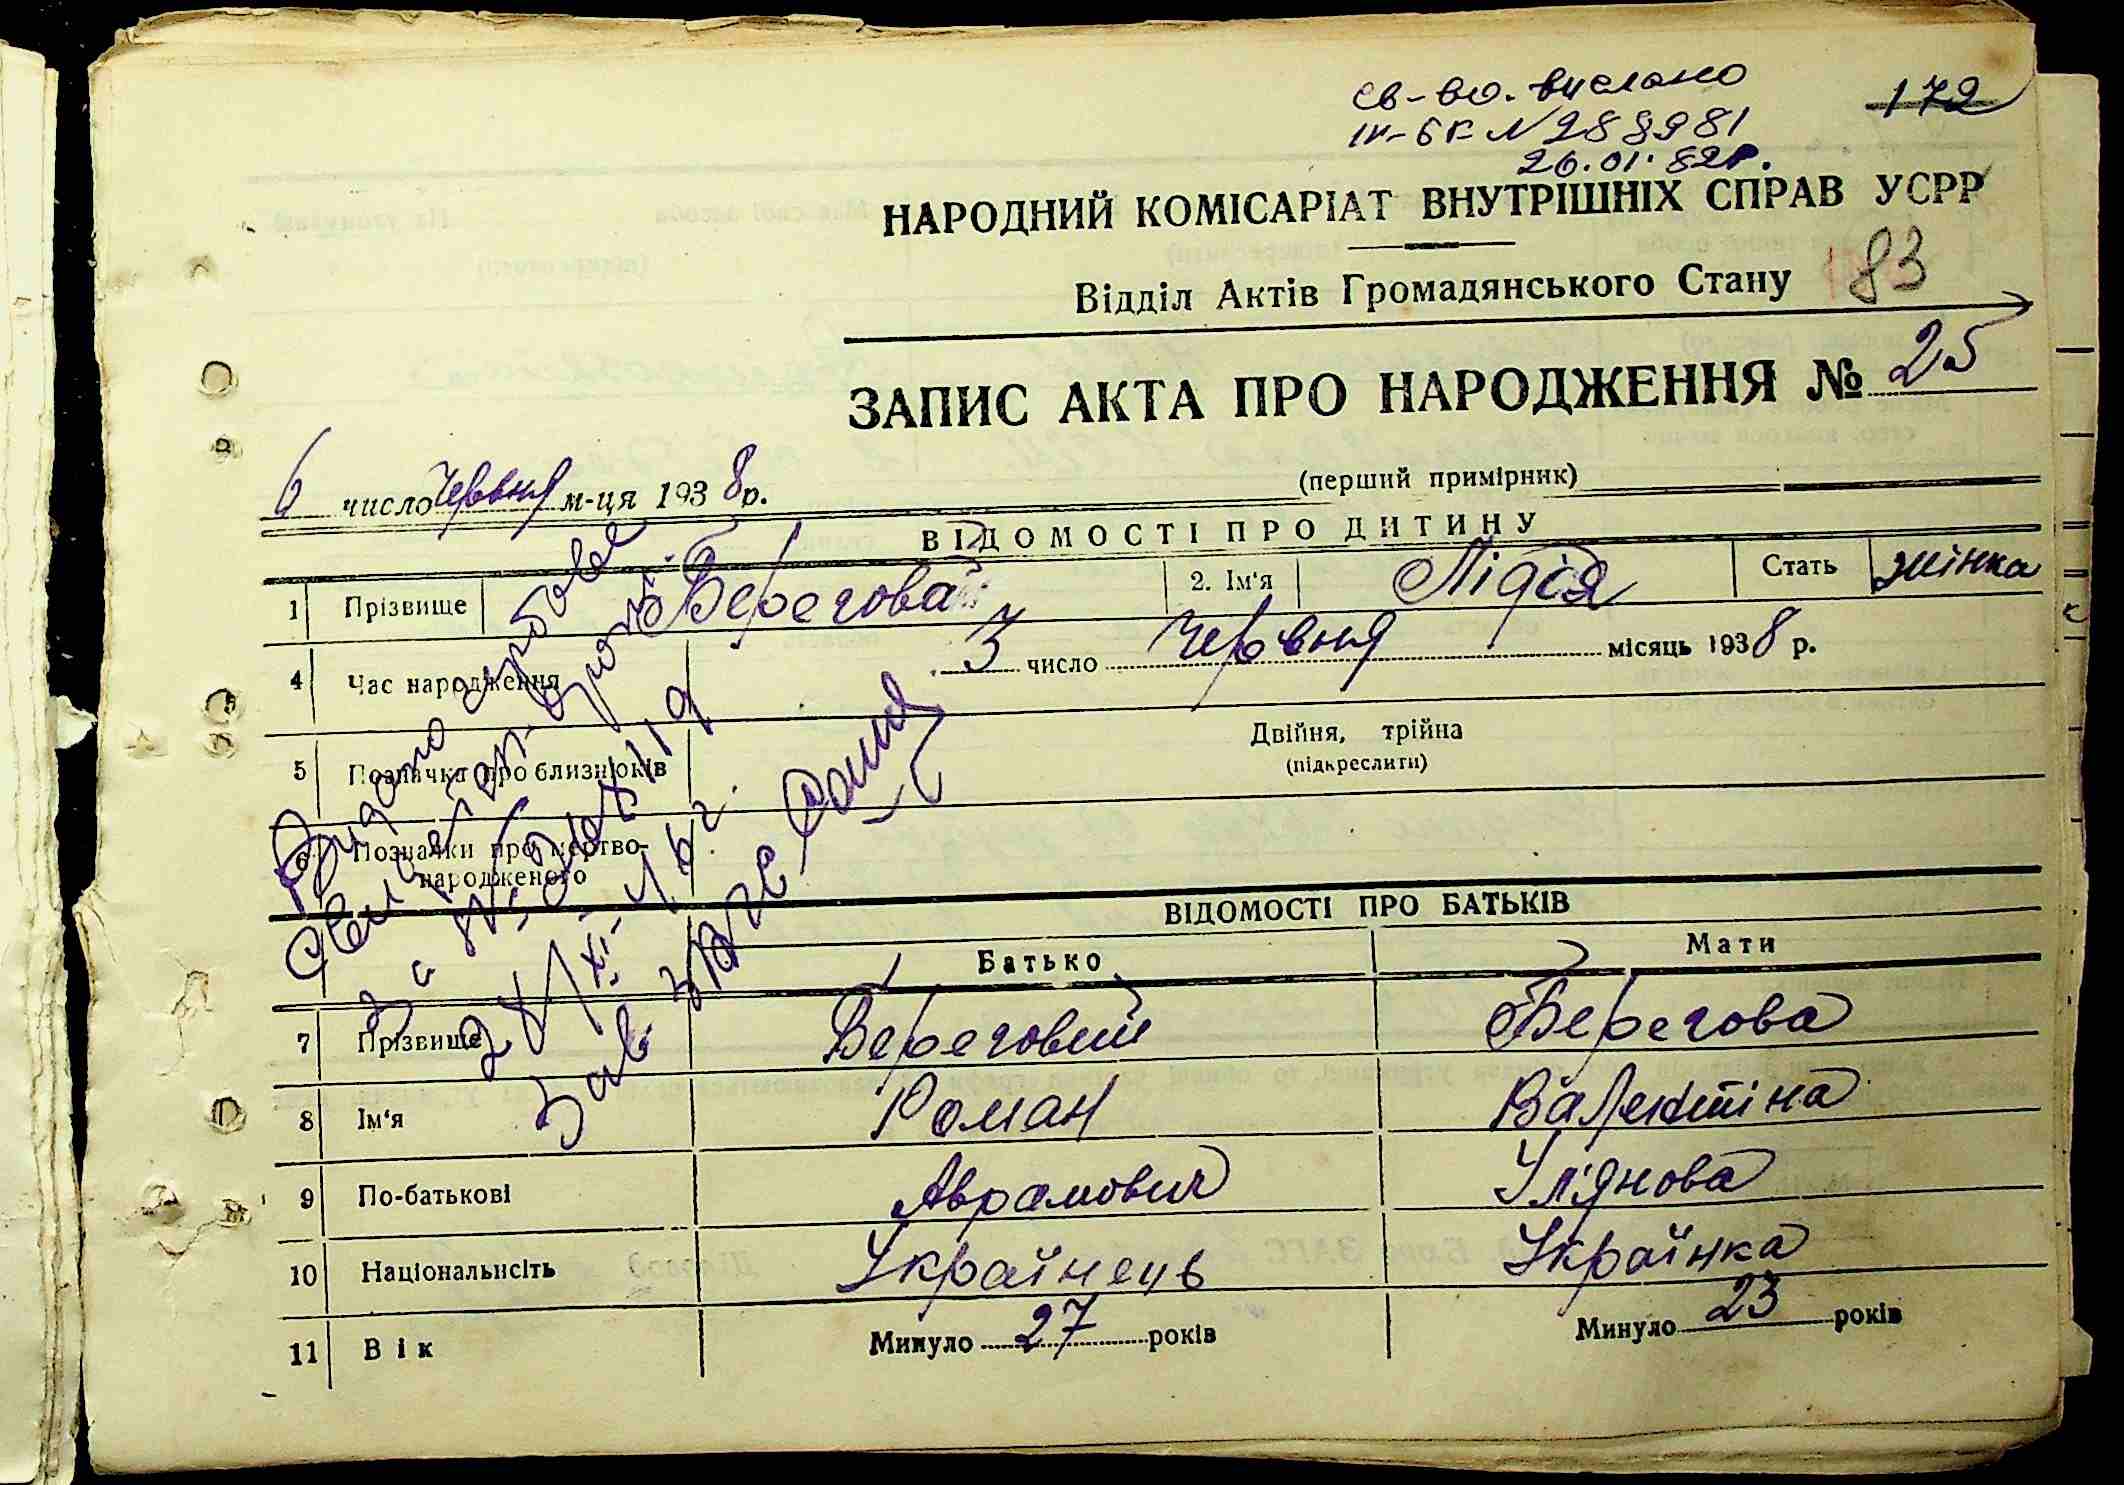 св-во. вислано
IV-БК N 288981
26.01.82р.
172
НАРОДНИЙ КОМІСАРІАТ ВНУТРІШНІХ СПРАВ УСРР
Відділ Актів Громадянського Стану
83
ЗАПИС АКТА ПРО НАРОДЖЕННЯ № 25
6 число червня м-ця 1938 р.
(перший примірник)
ВІДОМОСТІ ПРО ДИТИНУ
1 Прізвище Берегова 2. Ім'я Лідія Стать жінка
4 Час народження 3 число червня місяць 1938 р.
5 Позначка про близнюків Двійня, трійна
(підкреслити)
6 Позначки про мертво-
народженого
Видано
за №
Зав. ЗАГС
ВІДОМОСТІ ПРО БАТЬКІВ
Батько Мати
7 Прізвище Береговий Берегова
8 Ім'я Роман Валентіна
9 По-батькові Аврамович Улянова
10 Національнсіть Українець Українка
11 Вік Минуло 27 років Минуло 23 років